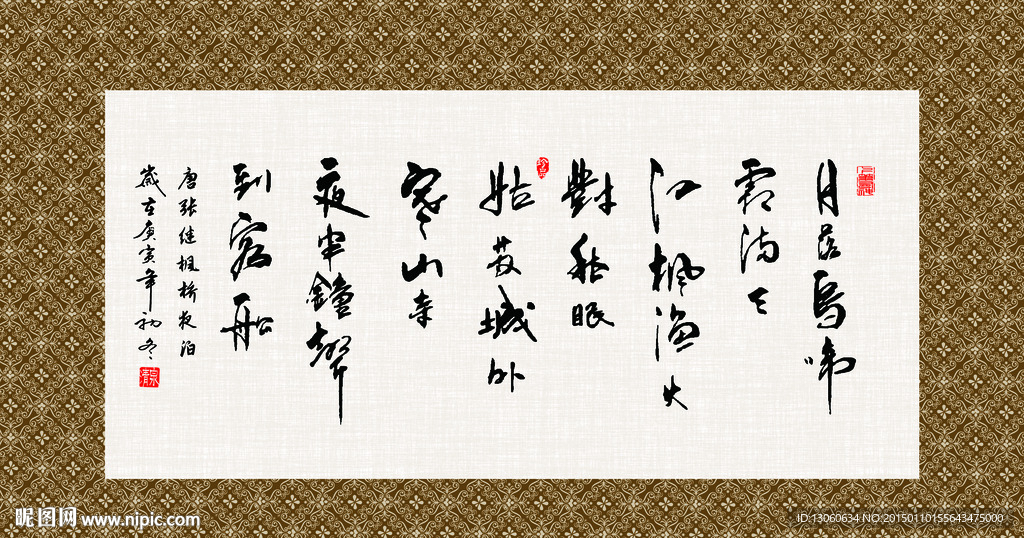 月落烏啼
霜满天
江楓渔火
對愁眠
姑苏城外
寒山寺
夜半鐘聲
到客船
唐张继枫桥夜泊
歲在庚寅年初冬
昵图网 www.nipic.com
ID:13060634 NO:20150110155643475000